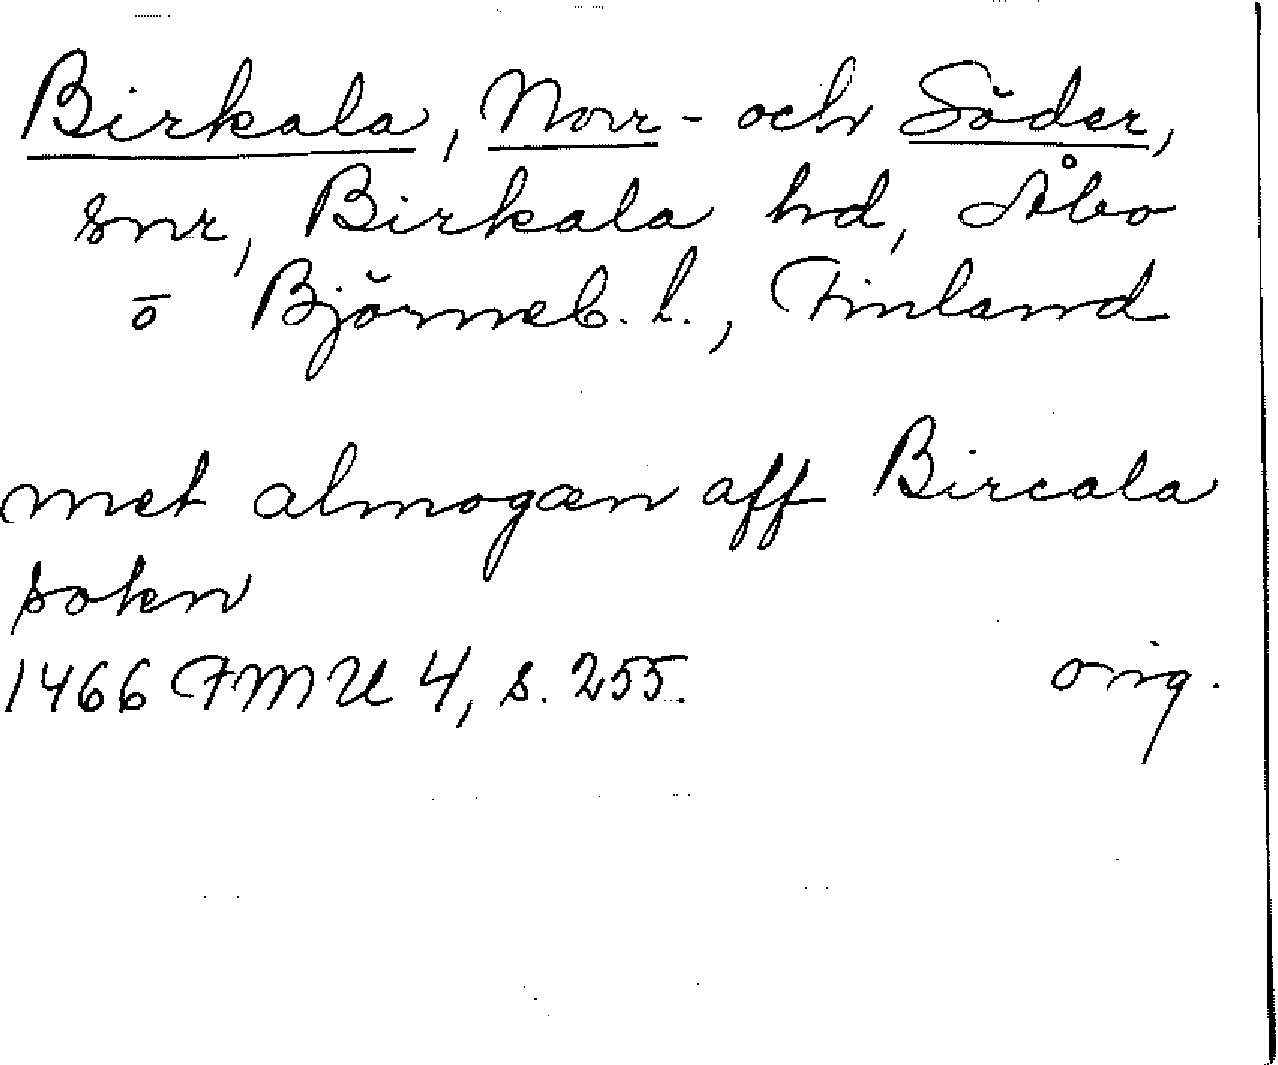 Birkala, Norr- och Söder,
snr, Birkala hd, Åbo
o Björneb. l., Finland
met almogæn aff Bircala
sokn
1466 FMU 4, s. 255. orig.